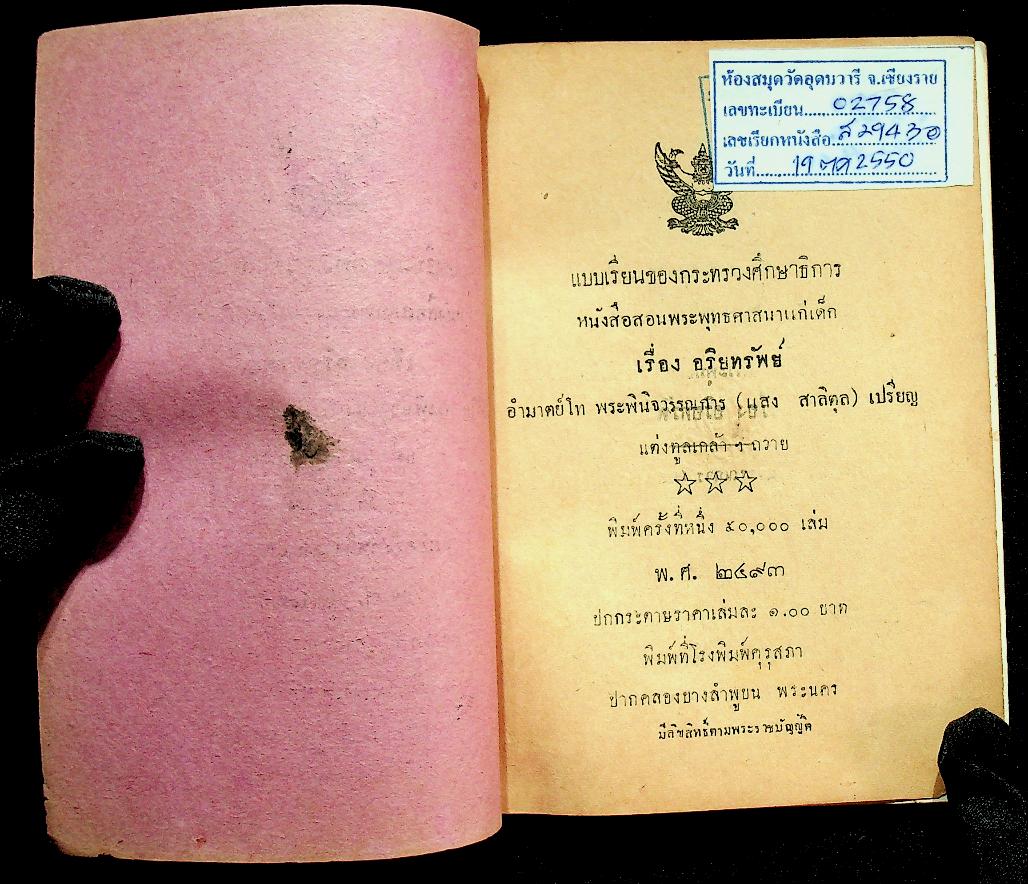 ห้องสมุดวัดอุดมวารี จ.เชียงราย
เลขทะเบียน......02758......
เลขเรียกหนังสือ...ส 294 3อ
วันที่......19 ตค 2550......
แบบเรียนของกระทรวงศึกษาธิการ
หนังสือสอนพระพุทธศาสนาแก่เด็ก
เรื่อง อริยทรัพย์
อำมาตย์โท พระพินิจวรรณการ (แสง สาลิตุล) เปรียญ
แต่งทูลเกล้า ฯ ถวาย
พิมพ์ครั้งที่หนึ่ง ๕๐,๐๐๐ เล่ม
พ.ศ. ๒๔๙๓
ปกกระดาษราคาเล่มละ ๑.๐๐ บาท
พิมพ์ที่โรงพิมพ์คุรุสภา
ปากคลองบางลำพูบน พระนคร
มีลิขสิทธิ์ตามพระราชบัญญัติ